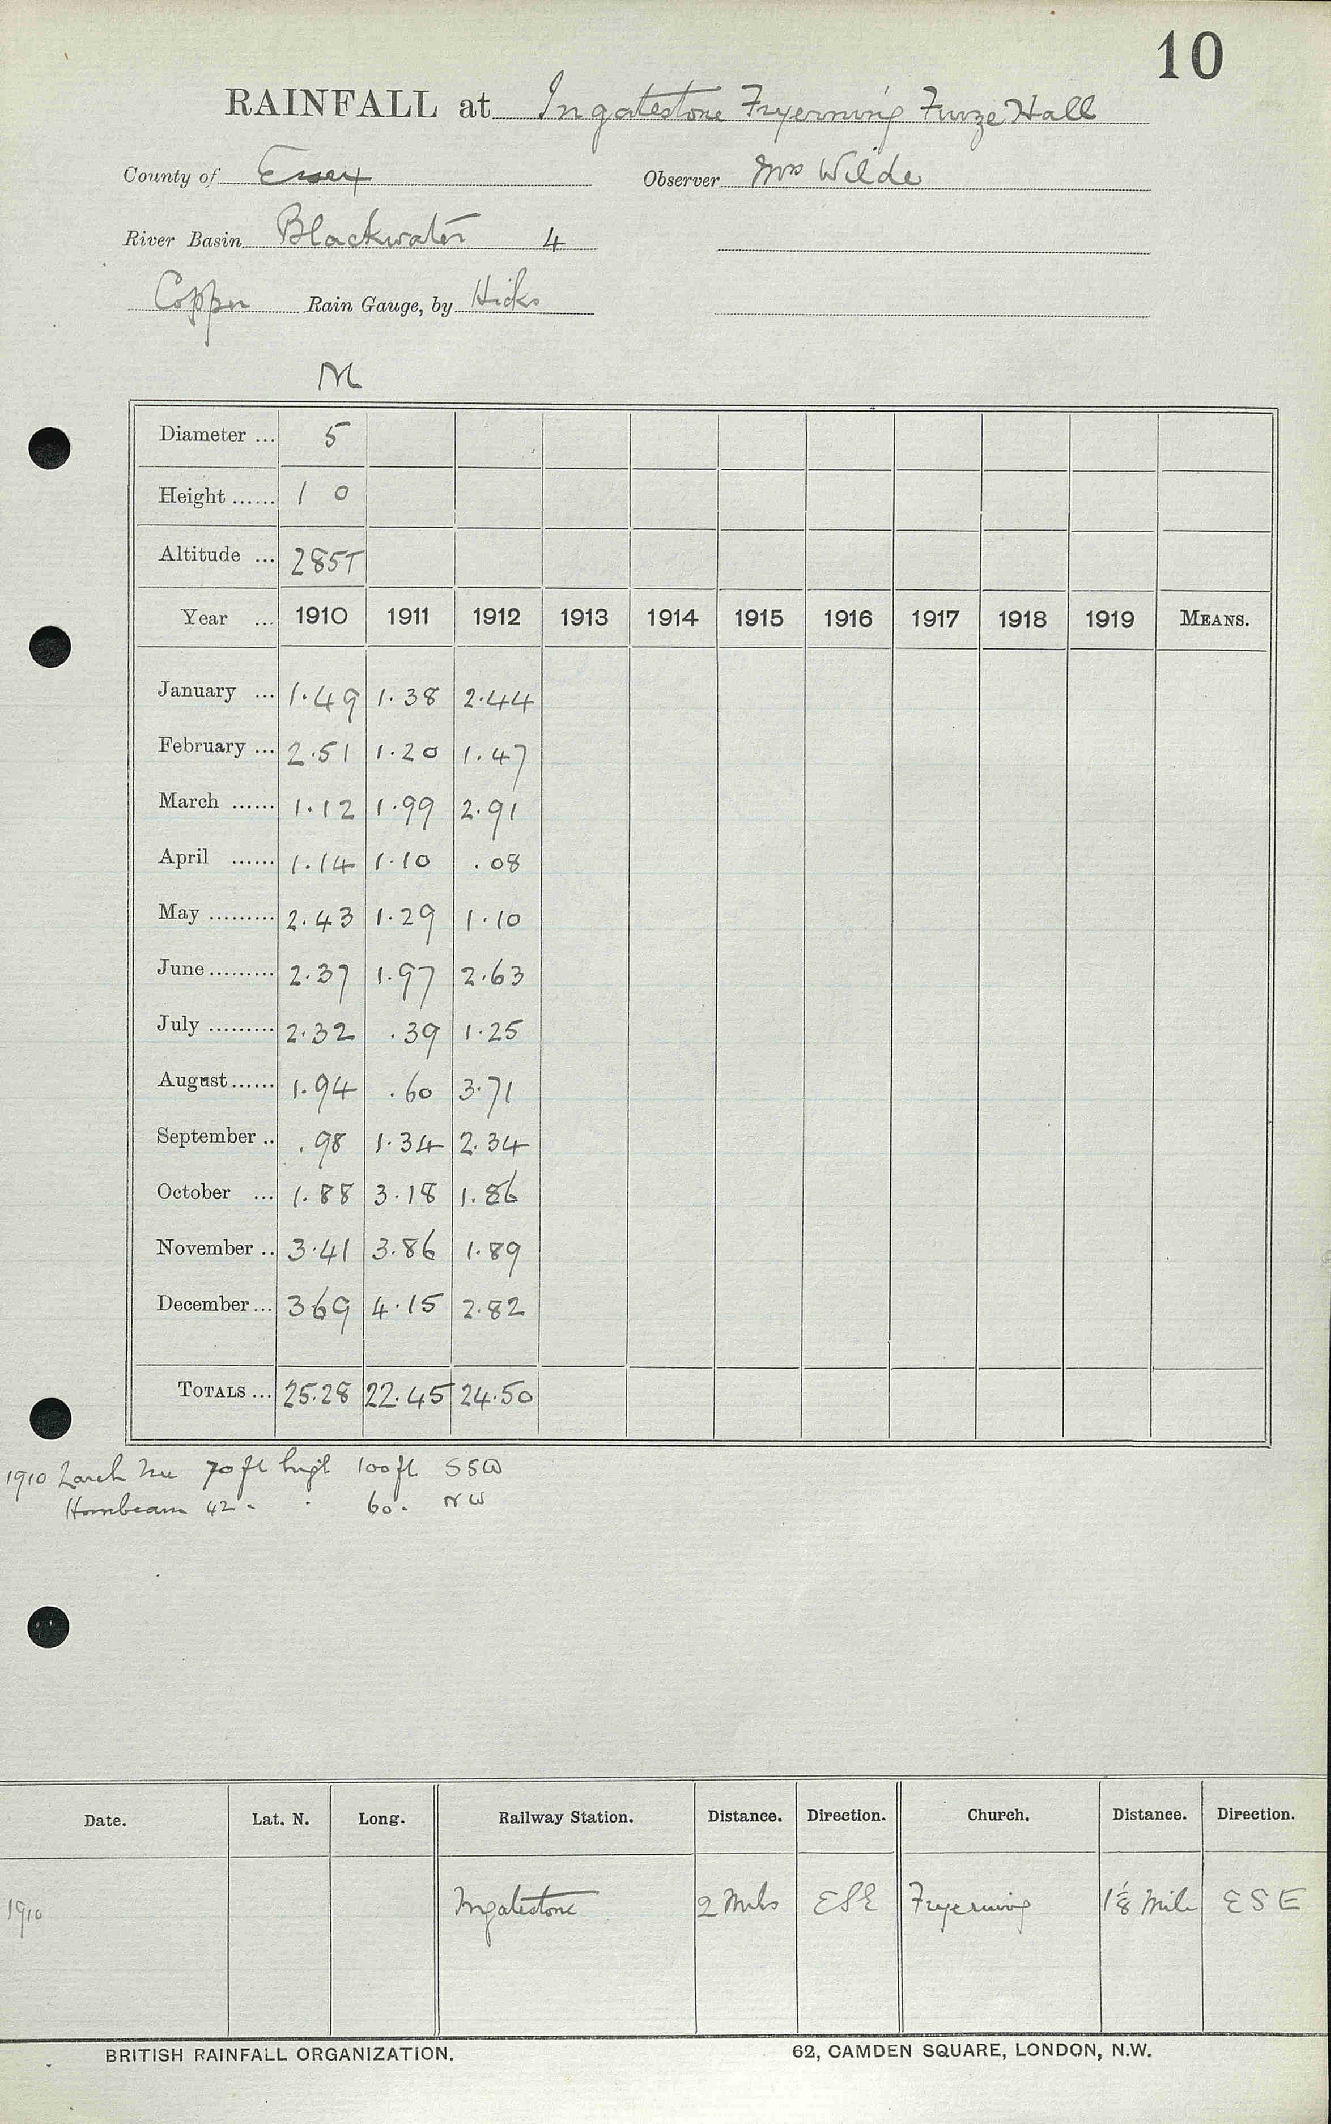 10
RAINFALL at Ingatestone Fryerning Furze Hall
County of Essex Observer Mrs Wilde
River Basin Blackwater 4
Copper Rain Gauge, by Hicks
M
Diameter ... 5
Height ...... 1 0
Altitude ... 285T
Year ... 1910 1911 1912 1913 1914 1915 1916 1917 1918 1919 MEANS.
January ... 1.49 1.38 2.44
February ... 2.51 1.20 1.47
March ...... 1.12 1.99 2.91
April ...... 1.14 1.10 .08
May ......... 2.43 1.29 1.10
June ......... 2.37 1.97 2.63
July ......... 2.32 .39 1.25
August ...... 1.94 .60 3.71
September .. .98 1.34 2.34
October ... 1.88 3.18 1.86
November .. 3.41 3.86 1.89
December ... 369 4.15 2.82
TOTALS ... 25.28 22.45 24.50
1910 Larch tree 70 ft high 100 ft SSW
Hornbeam 42 " " 60 " NW
Date. Lat. N. Long. Railway Station. Distance. Direction. Church. Distance. Direction.
1910 Ingatestone 2 Miles ESE Fryerning 1⅛ Mile ESE
BRITISH RAINFALL ORGANIZATION. 62, CAMDEN SQUARE, LONDON, N.W.